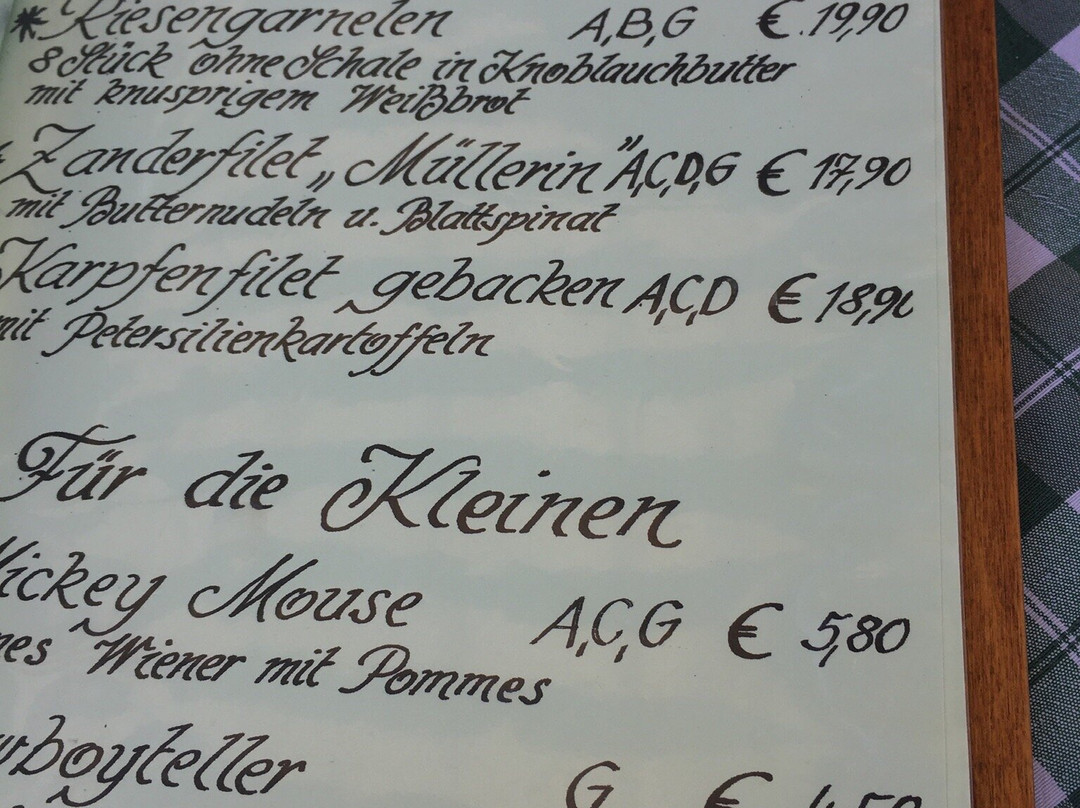 * Riesengarnelen A,B,G €.19,90
8 Stück ohne Schale in Knoblauchbutter
mit knusprigem Weißbrot
Zanderfilet „Müllerin" A,C,D,G € 17,90
mit Butternudeln u. Blattspinat
Karpfenfilet gebacken A,C,D € 18,90
mit Petersilienkartoffeln
Für die Kleinen
Mickey Mouse A,C,G € 5,80
Wiener mit Pommes
boyteller G €